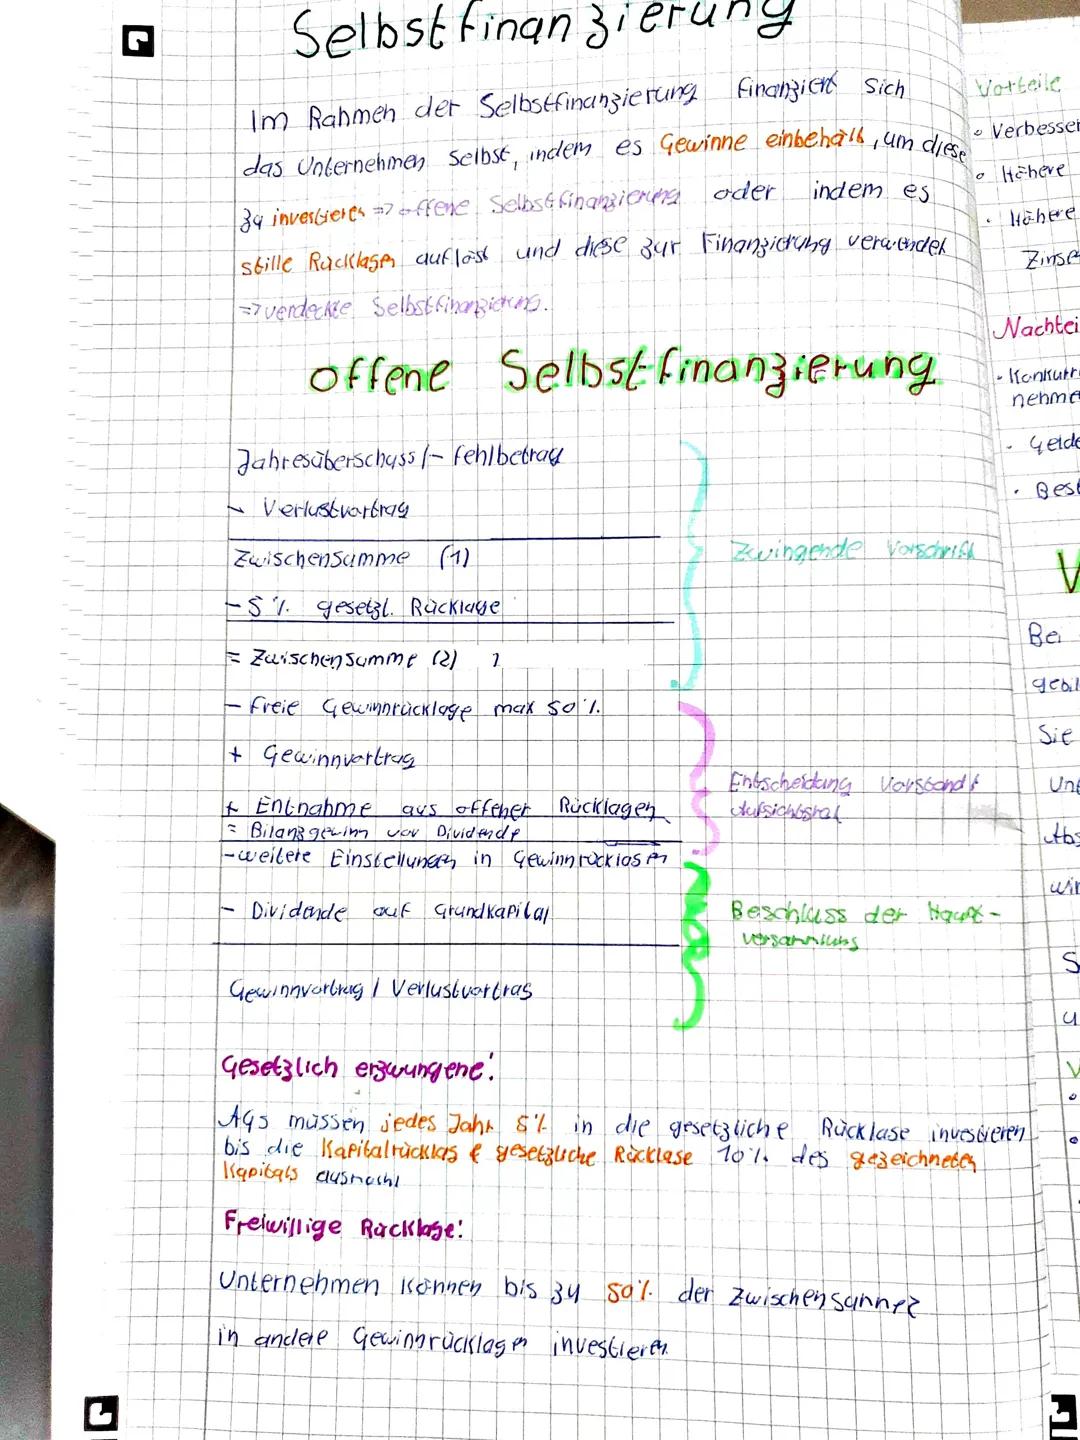 Selbstfinanzierung
Im Rahmen der Selbstfinanzierung finanziert sich
das Unternehmen selbst, indem es Gewinne einbehält, um diese
zu investieren => offene Selbstfinanzierung oder indem es
stille Rücklagen auflöst und diese zur Finanzierung verwendet
=> verdeckte Selbstfinanzierung.
offene Selbstfinanzierung
Jahresüberschuss / - fehlbetrag
- Verlustvortrag
Zwischensumme (1)
- 5% gesetzl. Rücklage
= Zwischensumme (2)
Zwingende Vorschrift
- freie Gewinnrücklage max 50%
+ Gewinnvortrag
+ Entnahme aus offener Rücklagen
= Bilanzgewinn vor Dividende
Entscheidung Vorstand &
Aufsichtsrat
- weitere Einstellungen in Gewinnrücklagen
- Dividende auf Grundkapital
Beschluss der Haupt-
versammlung
Gewinnvortrag / Verlustvortrag
Gesetzlich erzwungene:
AGs müssen jedes Jahr 5% in die gesetzliche Rücklage investieren
bis die Kapitalrücklag & gesetzliche Rücklage 10% des gezeichneten
Kapitals ausmacht
Freiwillige Rücklage:
Unternehmen können bis zu 50% der Zwischensumme 2
in andere Gewinnrücklagen investieren
Vorteile
Höhere
Höhere
Bei
Sie